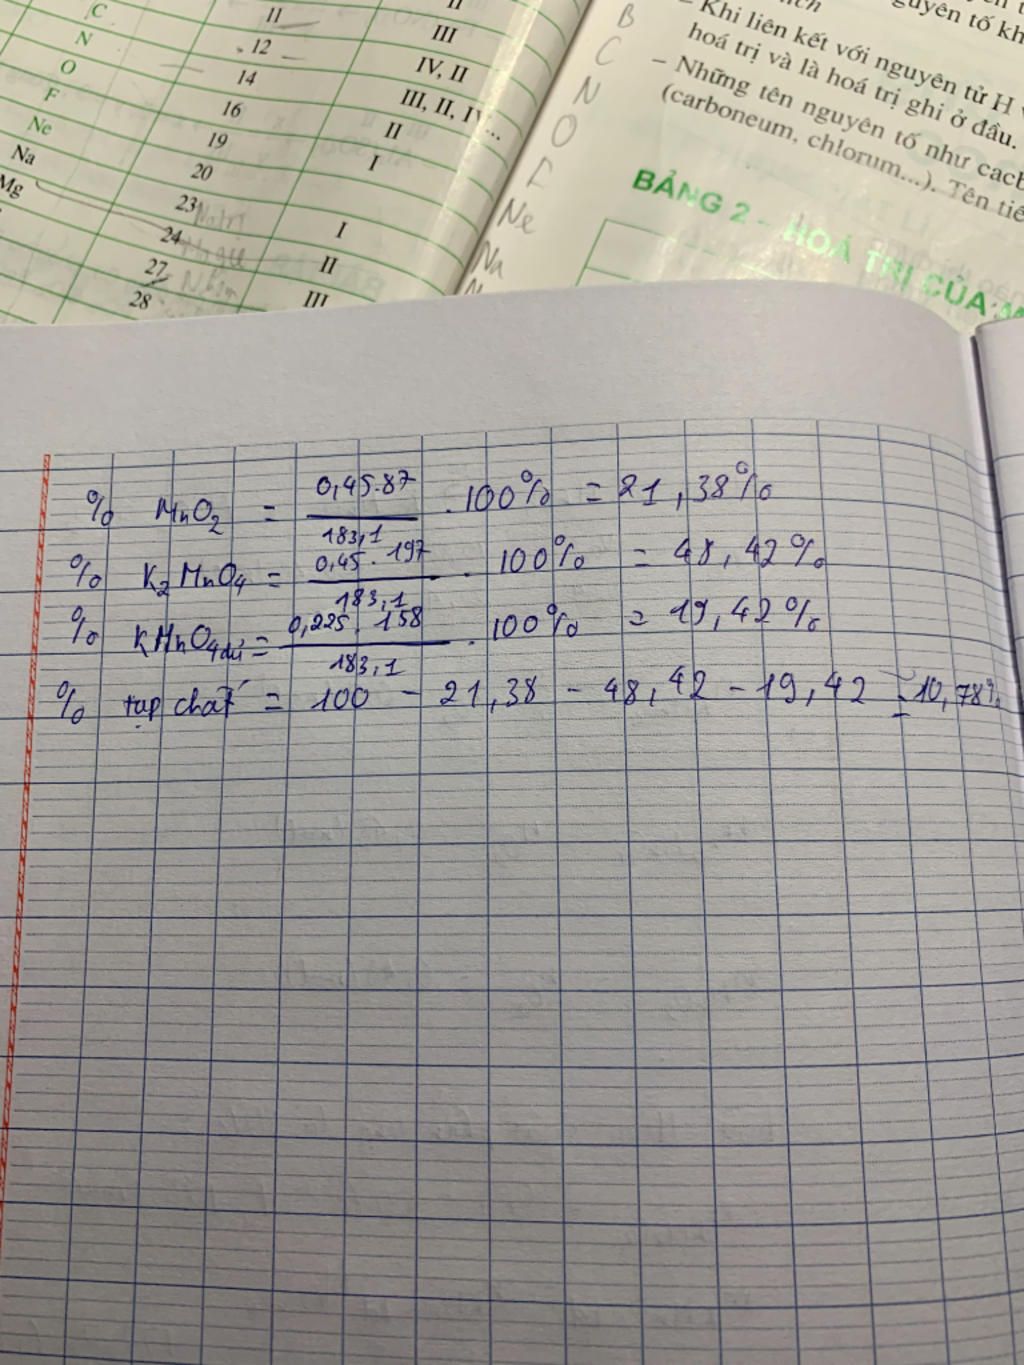 C
N
O
F
Ne
Na
Mg
11
12
14
16
19
20
23
24
27
28
II
III
IV, II
III, II, IV...
II
I
I
II
III
B
C
N
O
F
Ne
Na
– Khi liên kết với nguyên tử H
hoá trị và là hoá trị ghi ở đầu.
– Những tên nguyên tố như
(carboneum, chlorum...). Tên
BẢNG 2 - HOÁ TRỊ CỦA
% MnO2 = 0,45.87 / 183,1 . 100% = 21,38%
% K2MnO4 = 0,45 . 197 / 183,1 . 100% = 48,42%
% KMnO4 dư = 0,225 . 158 / 183,1 . 100% = 19,42%
% tạp chất = 100 - 21,38 - 48,42 - 19,42 = 10,78%